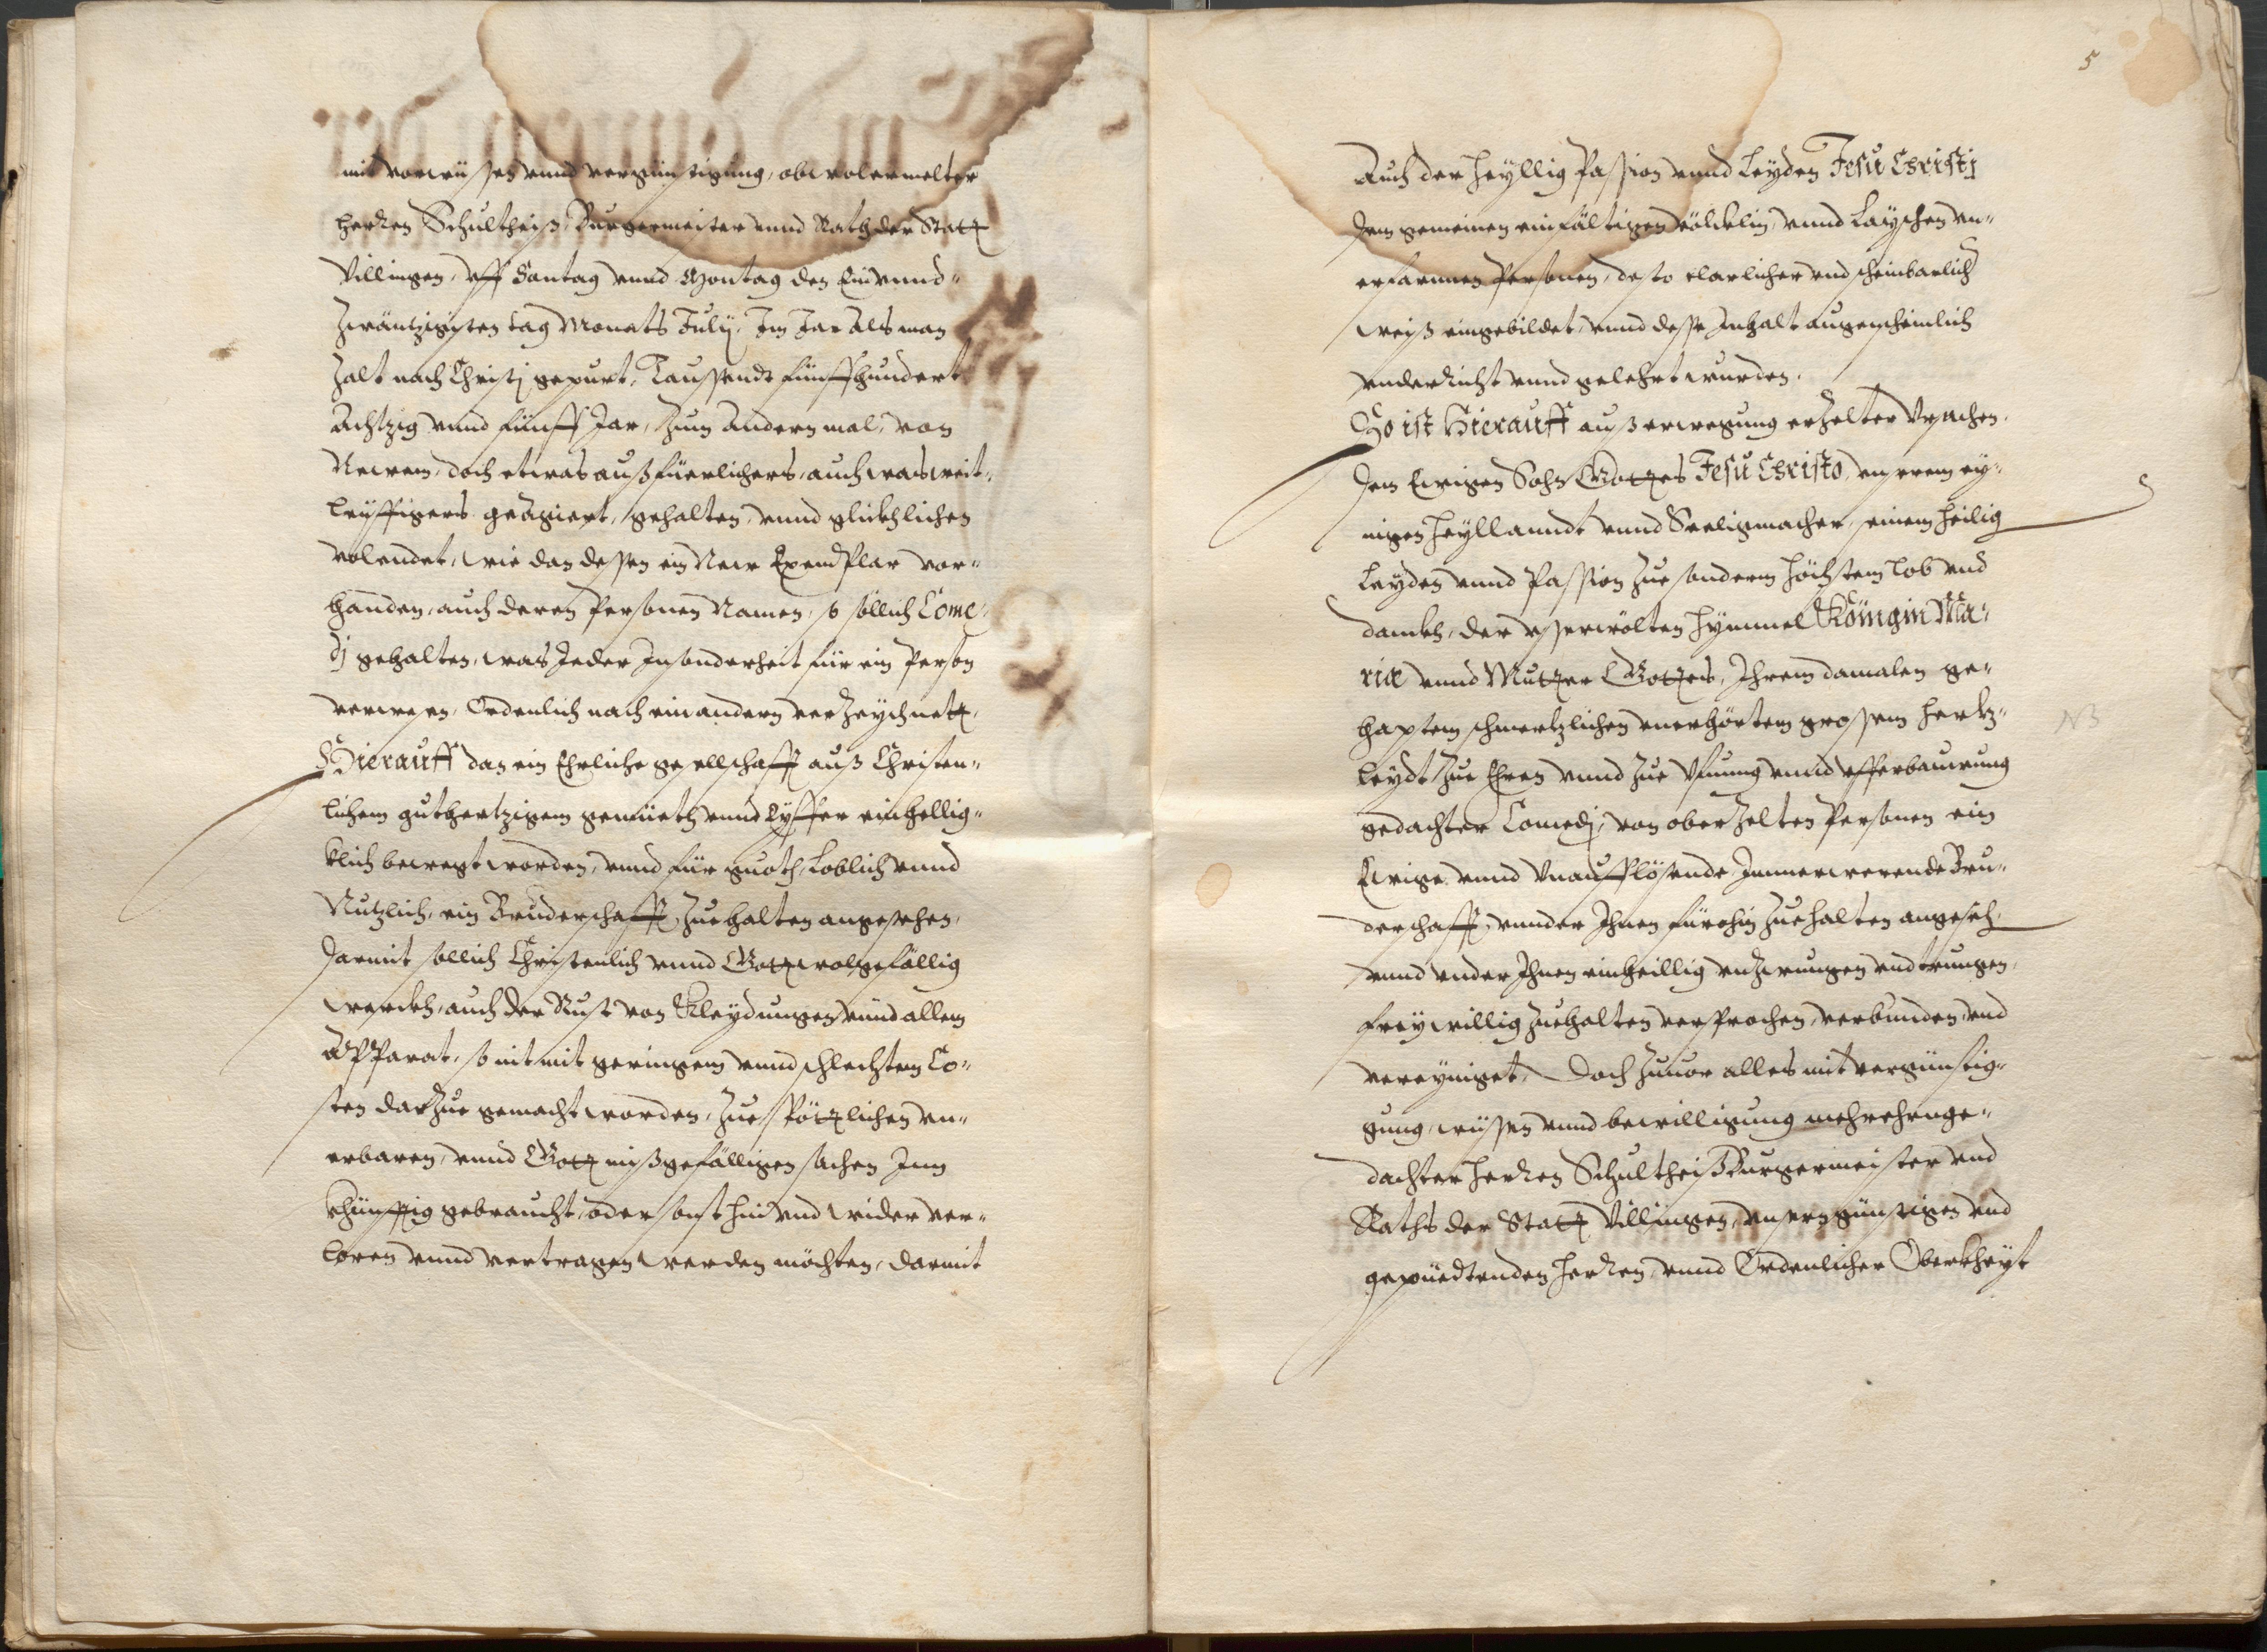 mit vorwüssen vnnd vergünstigung, obwolermelter
herren Schultheiß Burgermeister vnnd Rath der Statt
Villingen, vff Santag vnnd Montag den Ein vnnd¬
Zwäntzigisten tag Monats Julij, Im Jar als man
Zalt nach Christj gepurt, Taussendt fünffhundert
Achtzig vnnd fünff Jar, Zum andern mal, von
Newem, doch etwas außfüerlichers, auch was weit¬
leyffigers geägiert, gehalten, vnnd glickhlichen
volendet, wie dan dessen ein New Exemplar vor¬
handen, auch deren Personen Namen, so sollich Come¬
dj gehalten, was Jeder Insonderheit für ein Person
verwesen, Ordenlich nach ein andern verZeychnett,
Hierauff dan ein Ehrliche gesellschafft auß Christen¬
lichem guthertzigem gemüeth vnnd Eyffer einhellig¬
klich bewegt worden, vnnd für guoth, Loblich vnnd
Nutzlich, ein Bruderschafft, Zue halten angesehen,
Darmit sollich Christenlich vnnd Gott wolgefällig
werckh, auch der Rust von Kleydungen vnnd allem
Apparat, so nit mit geringem vnnd schlechtem Co¬
sten darZue gemacht worden, Zue spöttlichen vn¬
erbaren, vnnd Gott mißgefälligen sachen Inn
khünfftig gebraucht, oder sonst hin vnd wider ver¬
loren vnnd vertragen werden möchten, darmit
5
Auch der heyllig Passion vnnd Leyden Jesu Christj
dem gemeinen einfältigen völcklin, vnnd Layschen vn¬
erfarnnen Personen, desto clarlicher vnd scheinbarlich
weiß eingebildet, vnnd desse Inhalt augenscheinlich
vnderricht vnnd gelehrt wurden.
So ist Hierauff auß erwegung erzelter Vrsachen,
dem Ewigen Sohn Gottes Jesu Christo, vnserem ey¬
nigen heyllanndt vnnd Seeligmacher, seinem heilig
Leyden vnnd Passion Zue sonderm höchstem lob vnd
danckh, der vsserwölten hymmel Köingin Ma¬
riæ vnnd Mutter Gottes, Ihrem damalen ge¬
haptem schmertzlichen vnerhörtem grossem hertz¬
leydt Zue Ehren vnnd Zue Vffnung vnnd vfferbauwung
NB
gedachter Comedj, von oberzelten Personen ein
Ewige vnnd Vnaufflösende Immerwerende Bru¬
derschafft, vnnder Ihnen fürohin Zue halten angeseh,
vnnd vnder Ihnen einheillig vnzwungen vndtrungen,
freywillig Zuehalten versprochen, verbunden, vnd
vereyniget, Doch Zuuor alles mit vergünstig¬
gung, wüssen vnnd bewilligung mehrehrnge¬
dachter herren Schultheiß Burgermeister vnd
Raths der Statt Villingen, vnsern günstigen vnd
gepüedtenden herren, vnnd Ordenlicher Oberkheyt